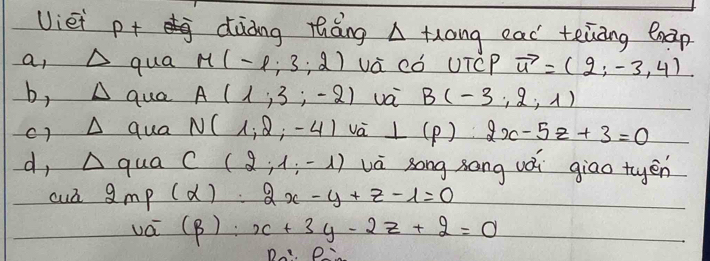 Viết pt đường thẳng Δ trong các trường hợp
a, Δ qua M(-1; 3; 2) và có VTCP u⃗ = (2; -3, 4)
b, Δ qua A (1; 3; -2) và B(-3; 2; 1)
c) Δ qua N( 1; 2; -4) và ⊥ (p) : 2x - 5z + 3 = 0
d, Δ qua C (2; 1; -1) và song sang với giao tuyến
cuả 2mp (α) : 2x - y + z - 1 = 0
và (β) : x + 3y - 2z + 2 = 0